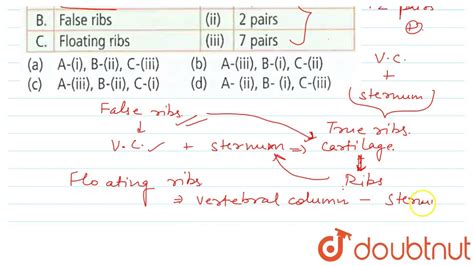 +2 pairs
B. False ribs (ii) 2 pairs
C. Floating ribs (iii) 7 pairs
(a) A-(i), B-(ii), C-(iii) (b) A-(iii), B-(i), C-(ii)
(c) A-(iii), B-(ii), C-(i) (d) A- (ii), B- (i), C-(iii)
V.C.
+
(sternum)
False ribs
True ribs.
V.C. + sternum ⇒ cartilage.
Floating ribs
Ribs
⇒ vertebral column - Sternu
doubtnut